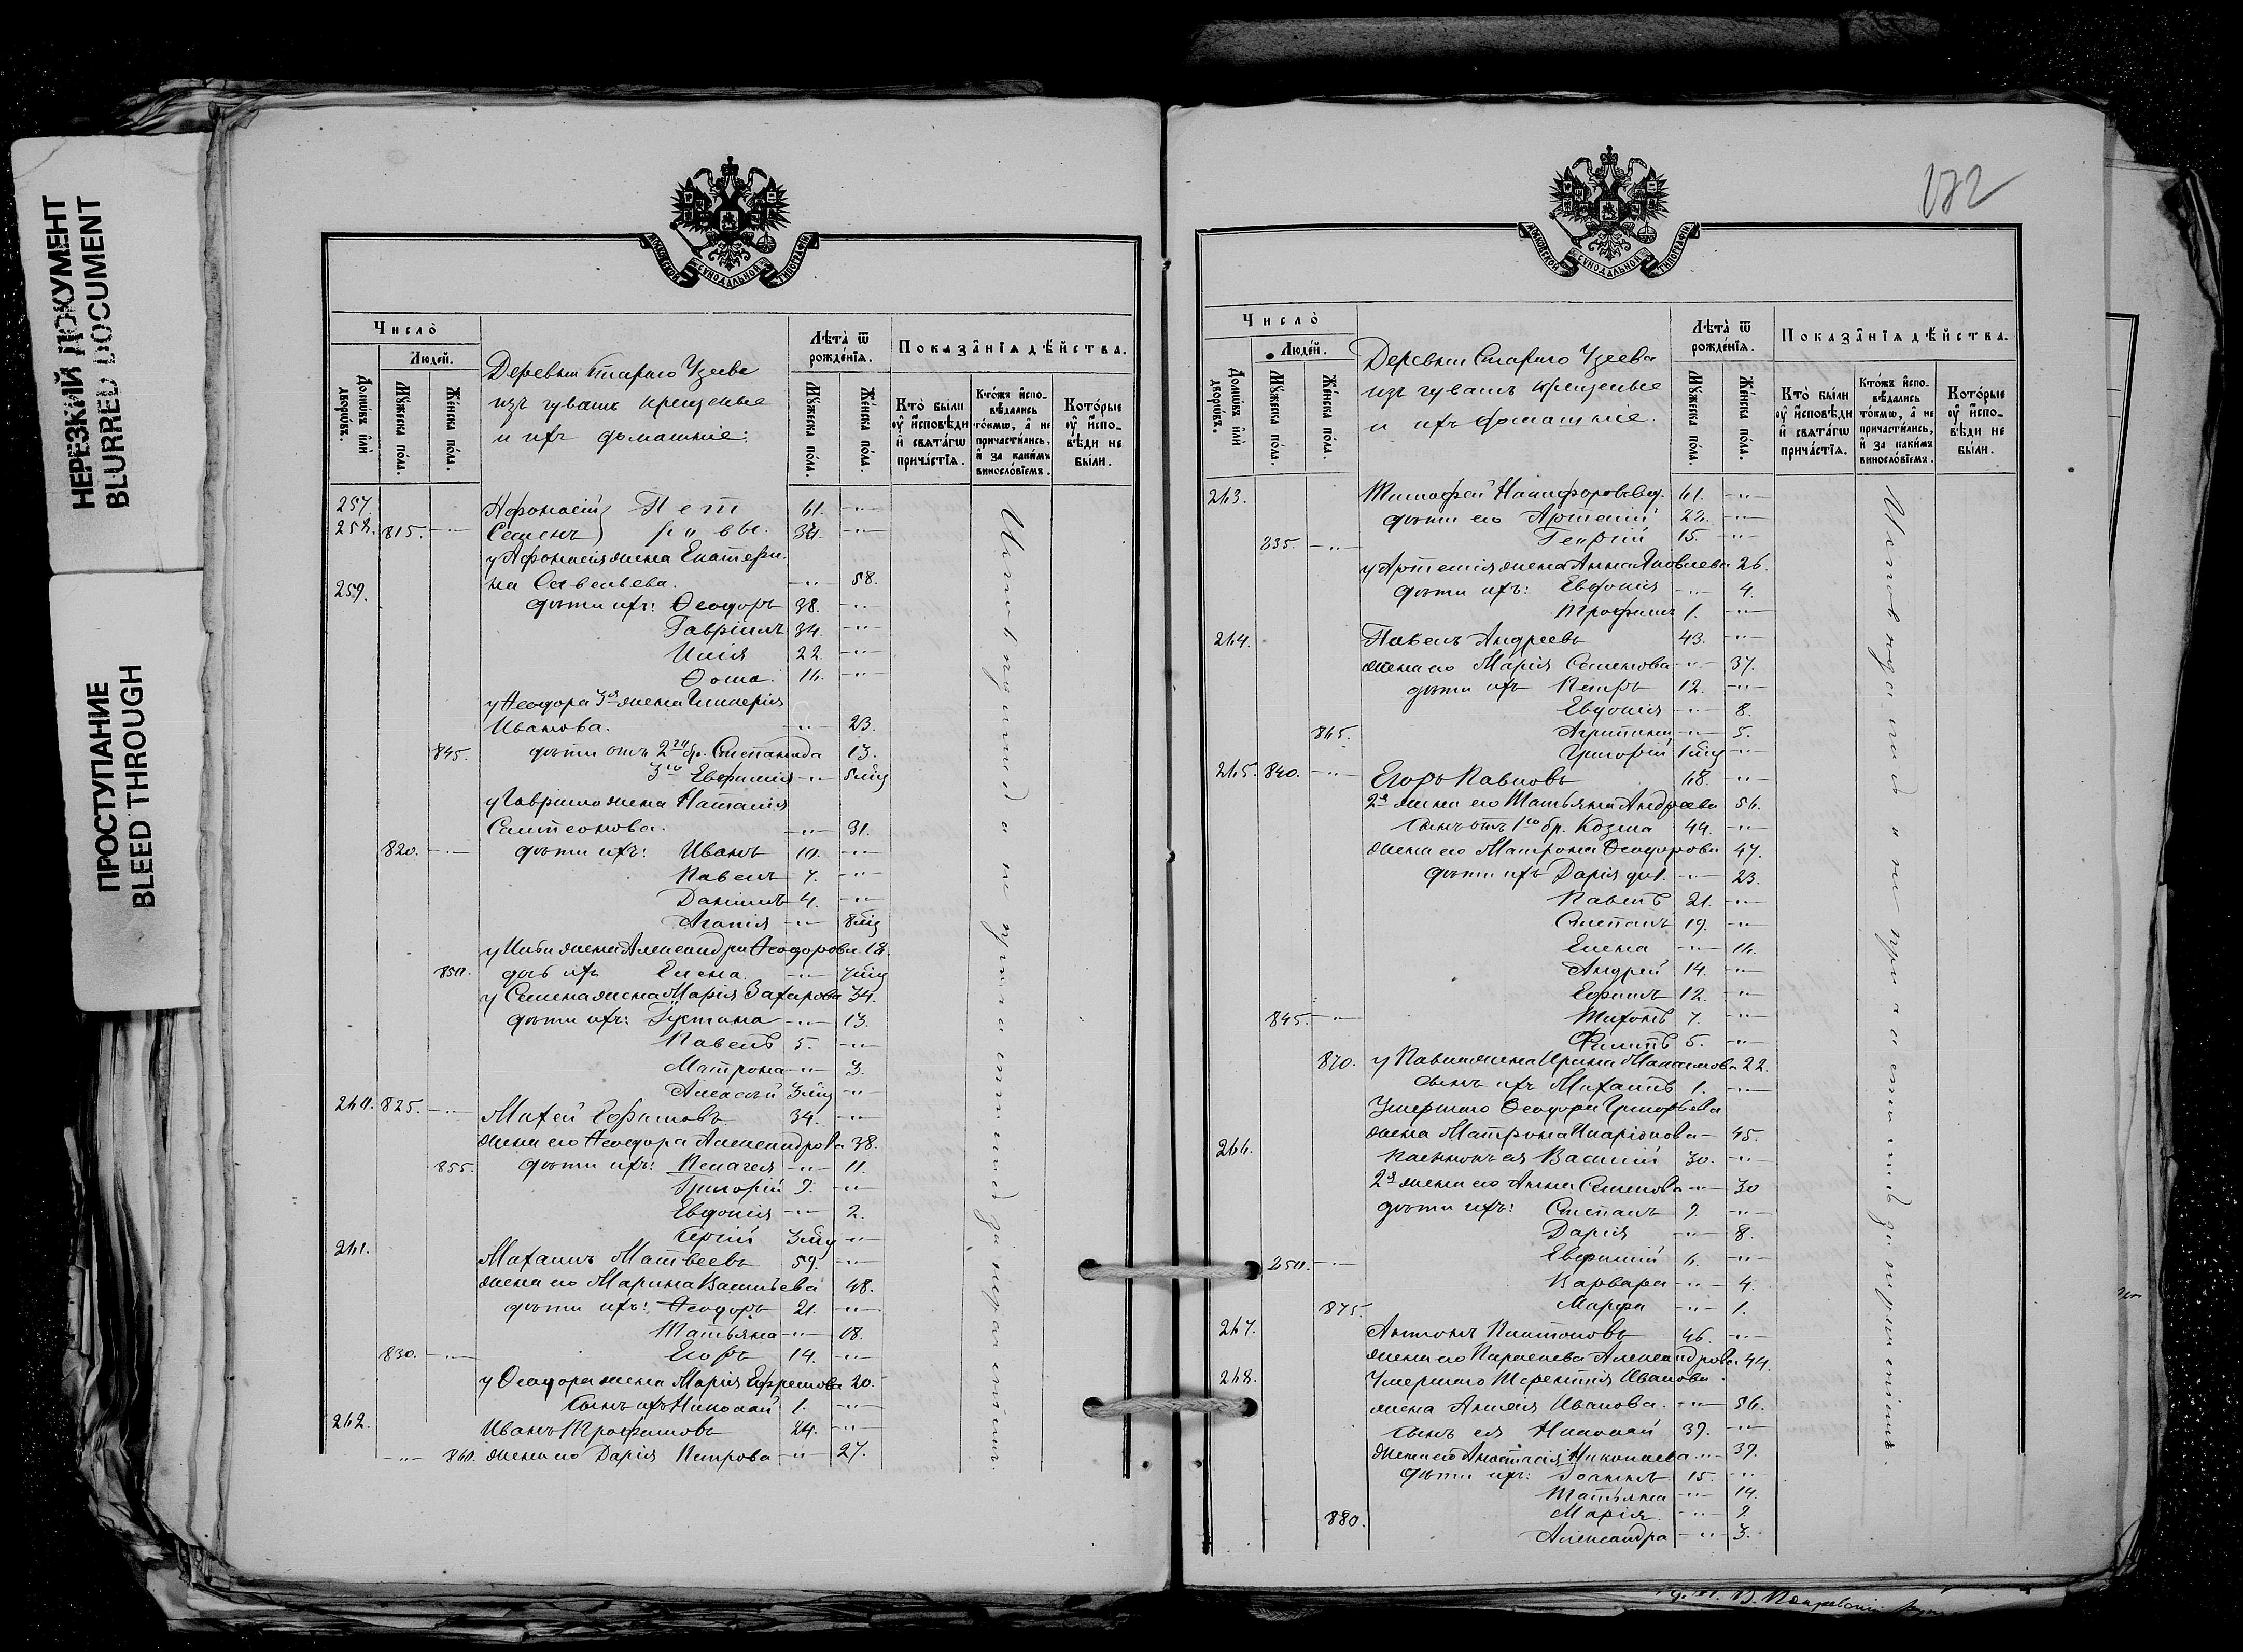 НЕРЕЗКИЙ ДОКУМЕНТ
BLURRED DOCUMENT
ПРОСТУПАНИЕ
BLEED THROUGH
МОСКОВСКОЙ СѴНОДАЛЬНОЙ ТИПОГРАФІИ
Число̀
Людей.
Домѡвъ и҆лѝ дворѡвъ.
Мꙋжеска по́ла.
Же́нска по́ла.
Деревни Стараго Узеева
изъ чувашъ крещеные
и ихъ домашніе:
Лѣта̀ ѿ рожде́нїѧ.
Мꙋжеска по́ла.
Же́нска по́ла.
Показа̑нїѧ дѣ́йства.
Кто̀ бы́ли оу҆ и҆́сповѣди и҆ свѧта́гѡ прича́стїѧ.
Кто́жъ и҆спо-вѣ́дались то́кмѡ, а҆ не причасти́лись, и҆ за каки́мъ винослові́емъ.
Кото́рые оу҆ и҆́спо-вѣди не бы́ли.
257. Афонасій } Пет 61. -"-
258. 815. -"- Семенъ } ро вы. 34. -"-
у Афонасія жена Екатери-
на Савельева. -"- 58.
259. дѣти ихъ: Ѳеодоръ 38. -"-
Гавріилъ 34. -"-
Илія 22. -"-
Ѳома. 16. -"-
у Ѳеодора 3я жена Гликерія
Иванова. -"- 23.
845. дѣти отъ 2го бр. Степанида 13.
3го Евфимія -"- 5 мѣц
у Гавріила жена Наталія
Симеонова. -"- 31.
820. -"- дѣти ихъ: Иванъ 10. -"-
Павелъ 7. -"-
Даніилъ 4. -"-
Агапія -"- 8 мѣц
у Ильи жена Александра Ѳеодорова 18.
850. дочь ихъ Елена. -"- 4 мѣц
у Семена жена Марія Захарова 34.
дѣти ихъ: Іустина -"- 13.
Павелъ 5. -"-
Матрона -"- 3.
Алексій 3 мѣц -"-
260. 825. -"- Михей Ефимовъ 34. -"-
жена его Ѳеодора Александрова 38.
855. дѣти ихъ: Пелагея -"- 11.
Григорій 9. -"-
Евдокія -"- 2.
Сергій 3 мѣц -"-
261. Михаилъ Матвеевъ 59. -"-
жена его Марина Васильева 48.
дѣти ихъ: Ѳеодоръ 21. -"-
Татьяна -"- 18.
830. -"- Егоръ 14. -"-
у Ѳеодора жена Марія Ефремова 20.
сынъ ихъ Николай 1. -"-
262. Иванъ Трофимовъ 24. -"-
-"- 860. жена его Дарія Петрова -"- 27.
172
МОСКОВСКОЙ СѴНОДАЛЬНОЙ ТИПОГРАФІИ
Число̀
Людей.
Домѡвъ и҆лѝ дворѡвъ.
Мꙋжеска по́ла.
Же́нска по́ла.
Деревни Стараго Узеева
изъ чувашъ крещеные
и ихъ домашніе.
Лѣта̀ ѿ рожде́нїѧ.
Мꙋжеска по́ла.
Же́нска по́ла.
Показа̑нїѧ дѣ́йства.
Кто̀ бы́ли оу҆ и҆́сповѣди и҆ свѧта́гѡ прича́стїѧ.
Кто́жъ и҆спо-вѣ́дались то́кмѡ, а҆ не причасти́лись, и҆ за каки́мъ винослові́емъ.
Кото́рые оу҆ и҆́спо-вѣди не бы́ли.
263. Тимофей Никифоровъ 61. -"-
дѣти его Артемій 22. -"-
835. -"- Георгій 15. -"-
у Артемія жена Анна Яковлева 26.
дѣти ихъ: Евдокія -"- 4.
Трофимъ 1. -"-
264. Павелъ Андреевъ 43. -"-
жена его Марія Семенова -"- 37.
дѣти ихъ Петръ 12. -"-
Евдокія -"- 8.
865. -"- 5.
Григорій 1 мѣц -"-
265. 840. -"- Егоръ Павловъ 68. -"-
2я жена его Татьяна Андреева 56.
сынъ отъ 1го бр. Козма 44. -"-
жена его Матрона Ѳеодорова 47.
дѣти ихъ Дарія -"- 23.
Павелъ 21. -"-
Степанъ 19. -"-
Елена -"- 16.
Андрей 14. -"-
Ефимъ 12. -"-
845. -"- Тихонъ 7. -"-
Филипъ 5. -"-
870. у Павла жена Ирина Максимова 22.
сынъ ихъ Михаилъ 1. -"-
Умершаго Ѳеодора Григорьева
жена Матрона Иларіонова - 45.
266. Василій 30. -"-
2я жена его Анна Семенова -"- 30
дѣти ихъ: Степанъ 9. -"-
Дарія -"- 8.
850. -"- Евфимій 6. -"-
Варвара -"- 4.
875. Марфа -"- 1.
267. Антонъ Платоновъ 46. -"-
жена его Параскева Александрова 44.
268. Умершаго Терентія Иванова
жена Иванова. -"- 56.
сынъ ея Николай 39. -"-
жена его Анастасія Николаева -"- 39.
дѣти ихъ: Іоаннъ 15. -"-
Татьяна -"- 14.
880. Марія -"- 9
Александра -"- 3.